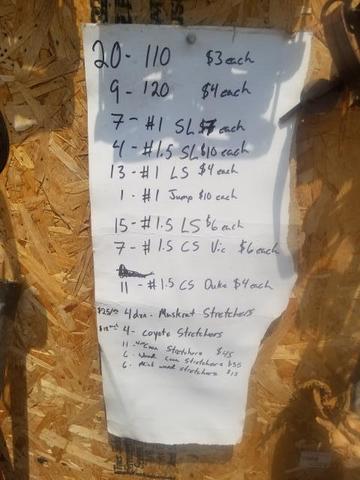 20 - 110 $3 each
9 - 120 $4 each
7 - #1 SL $7 each
4 - #1.5 SL $10 each
13 - #1 LS $4 each
1 - #1 Jump $10 each
15 - #1.5 LS $6 each
7 - #1.5 CS Vic $6 each
11 - #1.5 CS Duke $4 each
4 dzn - Muskrat Stretchers
4 - Coyote Stretchers
11 Coon Stretchers $45
6 Wood Coon Stretchers $35
6 - Mink wood stretchers $15